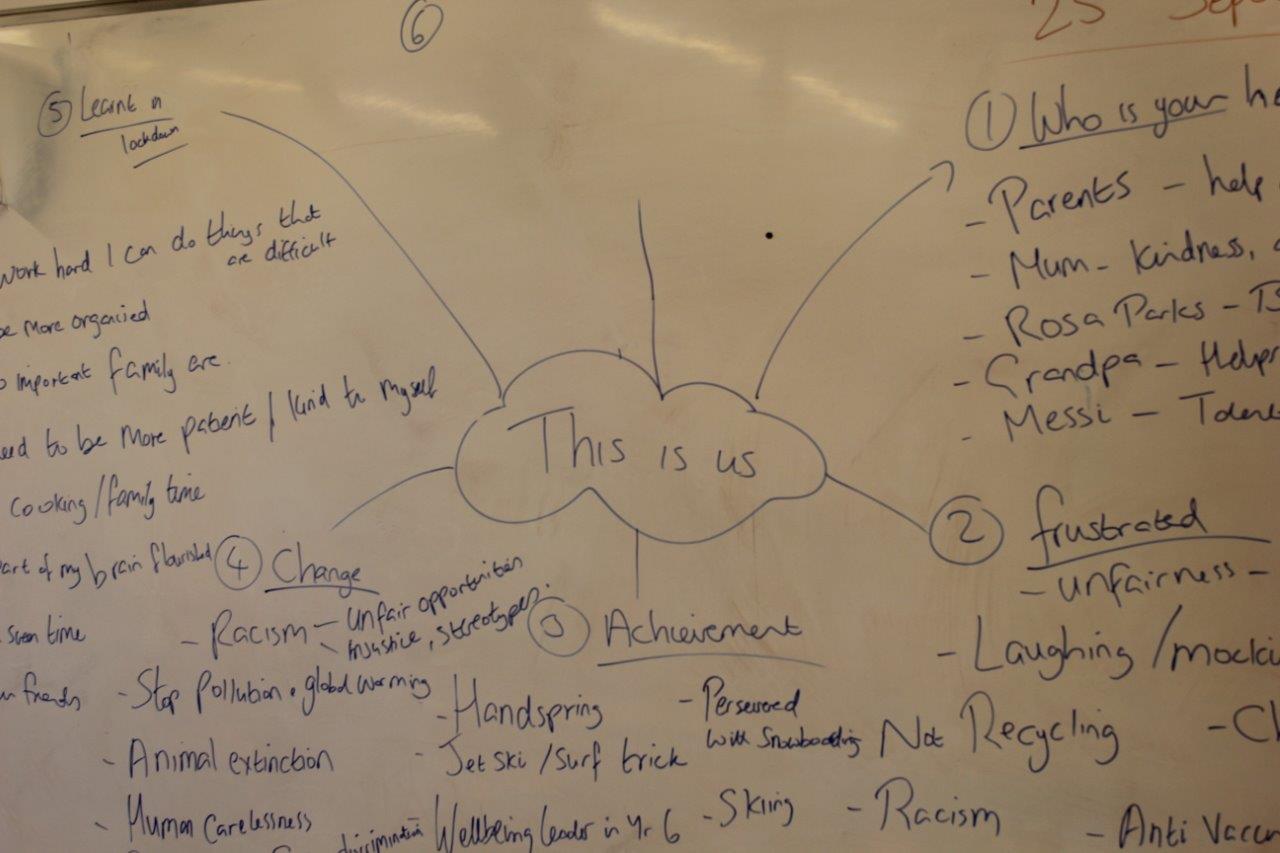 6
25 Sep
5 Learnt in
lockdown
work hard I can do things that
are difficult
be more organised
important family are.
need to be more patient / kind to myself
cooking / family time
part of my brain flourished
time
friends
This is us
1 Who is your he
- Parents - help
- Mum - kindness,
- Rosa Parks -
- Grandpa - Helps
- Messi - Talen
2 frustrated
- unfairness -
- Laughing / mocki
Not Recycling
- Racism
- Anti Vacc
3 Achievement
- Handspring
- Jet ski / surf trick
Wellbeing leader in Yr 6
- Persevered
with snowboarding
- Skiing
4 Change
- Racism - unfair opportunities
- injustice, stereotypes.
- Stop Pollution + global warming
- Animal extinction
- Human carelessness
discrimination